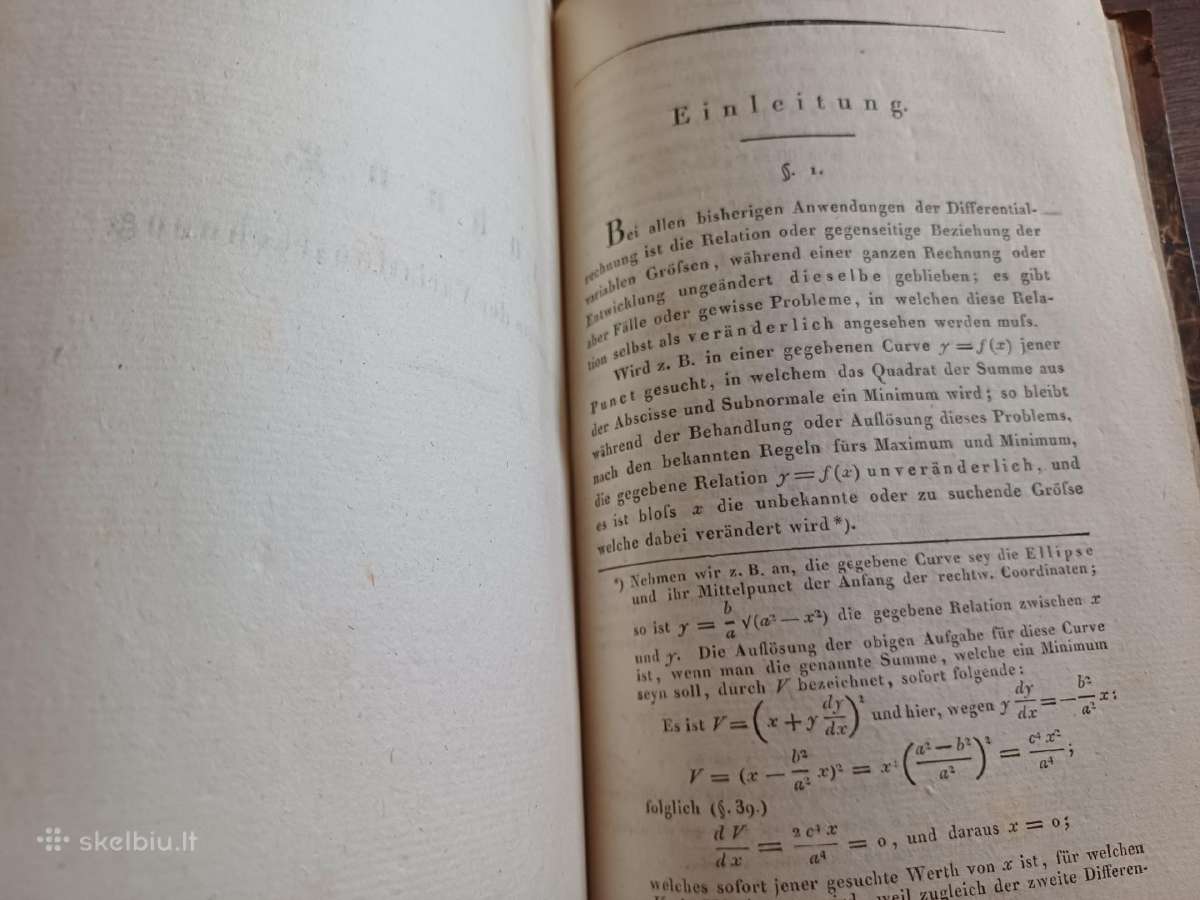 Einleitung.
§. 1.
Bei allen bisherigen Anwendungen der Differential-
rechnung ist die Relation oder gegenseitige Beziehung der
variablen Gröſsen, während einer ganzen Rechnung oder
Entwicklung ungeändert dieselbe geblieben; es gibt
aber Fälle oder gewisse Probleme, in welchen diese Rela-
tion selbst als veränderlich angesehen werden muſs.
Wird z. B. in einer gegebenen Curve y = f(x) jener
Punct gesucht, in welchem das Quadrat der Summe aus
der Abscisse und Subnormale ein Minimum wird; so bleibt
während der Behandlung oder Auflösung dieses Problems,
nach den bekannten Regeln fürs Maximum und Minimum,
die gegebene Relation y = f(x) unveränderlich, und
es ist bloſs x die unbekannte oder zu suchende Gröſse
welche dabei verändert wird*).
*) Nehmen wir z. B. an, die gegebene Curve sey die Ellipse
und ihr Mittelpunct der Anfang der rechtw. Coordinaten;
so ist y = b/a √(a² — x²) die gegebene Relation zwischen x
und y. Die Auflösung der obigen Aufgabe für diese Curve
ist, wenn man die genannte Summe, welche ein Minimum
seyn soll, durch V bezeichnet, sofort folgende:
Es ist V = (x + y dy/dx)² und hier, wegen y dy/dx = — b²/a² x:
V = (x — b²/a² x)² = x² (a² — b²/a²)² = c⁴ x²/a⁴;
folglich (§. 39.)
d V/d x = 2 c⁴ x/a⁴ = 0, und daraus x = 0;
welches sofort jener gesuchte Werth von x ist, für welchen
weil zugleich der zweite Differen-
skelbiu.lt